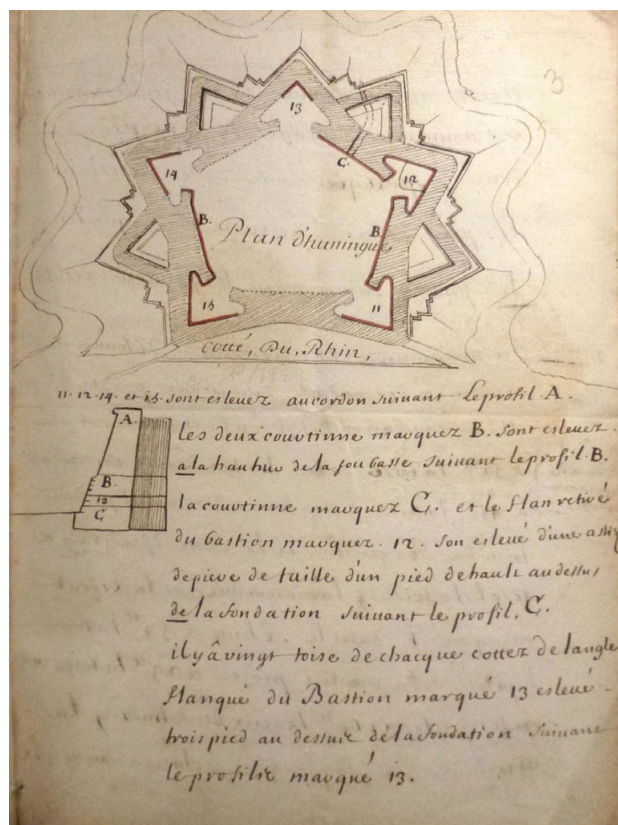 3
13
C.
14
12
B.
B
Plan d'huningue
15
11
cotté, Du, Rhin,
11. 12. 14. et 15. sont eslevez aucordon suivant Leprofil. A.
A.
B.
13
C
les deux courtinne marquez B. sont eslevez.
a la hauhur de la soubasse suivant leprofil. B.
la courtinne marquez C. et le flan retiré
du bastion marquez. 12. son eslevé d'une
depierre de taille d'un pied dehault audessus
de la fondation suivant le profil. C.
ilyâ vingt toise de chacque cottez de langle
flanqué du Bastion marqué 13 eslevé -
trois pied au dessus dela fondation suivant
le profilie marqué 13.